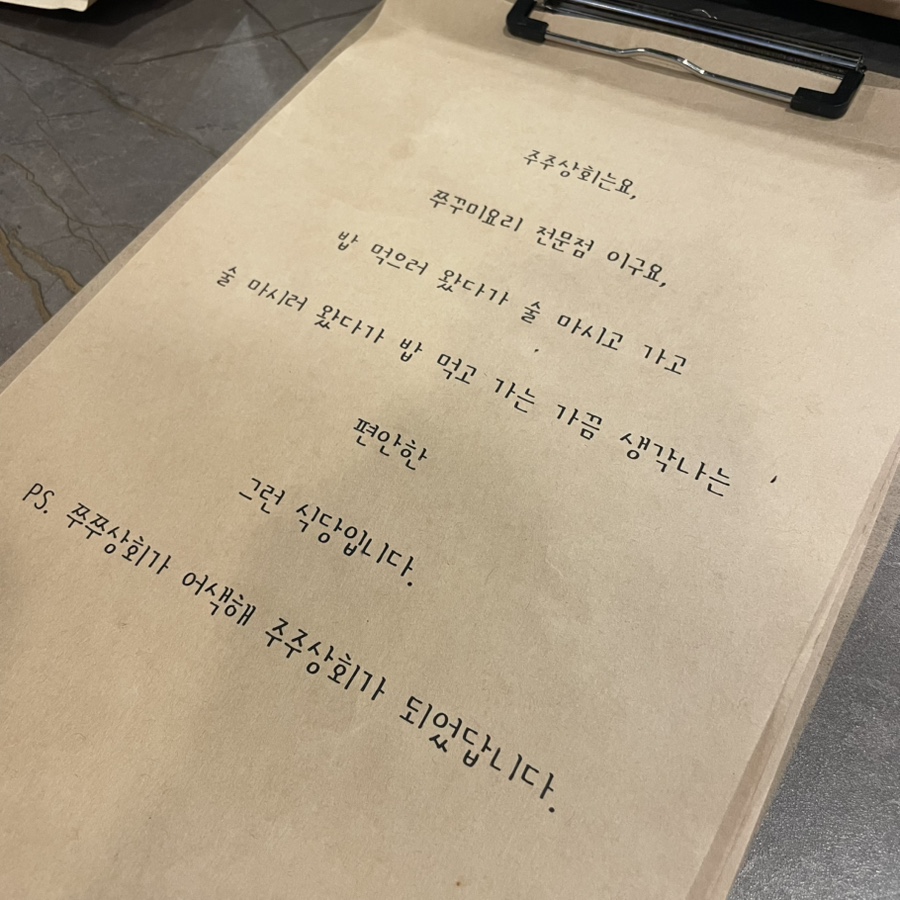 주주상회는요,
쭈꾸미요리 전문점 이구요,
밥 먹으러 왔다가 술 마시고 가고
술 마시러 왔다가 밥 먹고 가는 가끔 생각나는
편안한
그런 식당입니다.
PS. 쭈쭈상회가 어색해 주주상회가 되었답니다.